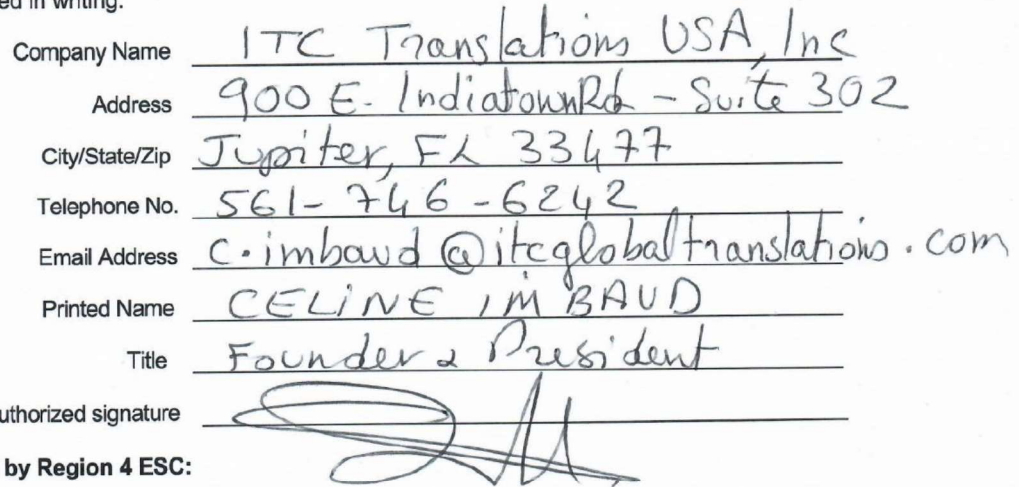 ed in writing.
Company Name ITC Translations USA, Inc
Address 900 E. Indiatown Rd - Suite 302
City/State/Zip Jupiter, FL 33477
Telephone No. 561-746-6242
Email Address c.imbaud@itcglobaltranslations.com
Printed Name CELINE IMBAUD
Title Founder & President
uthorized signature
by Region 4 ESC: